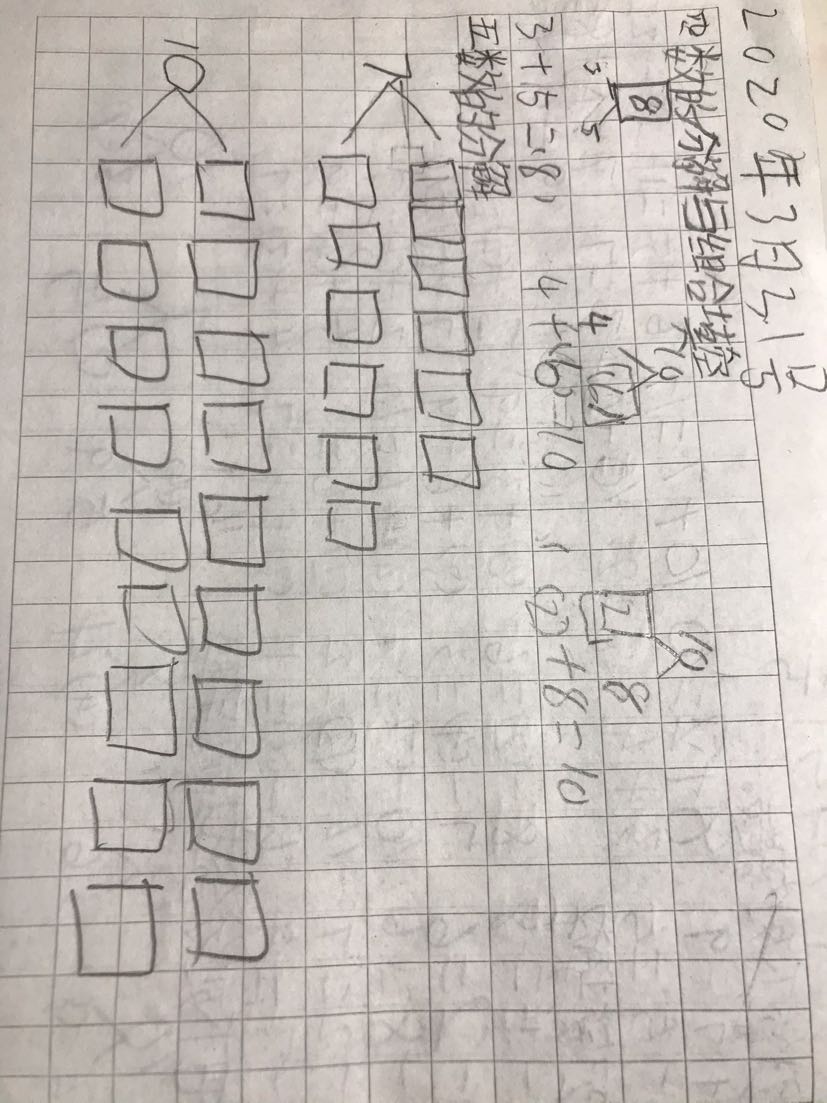 2020年3月21日
四数的分解与组合填空
8 10 10
3 5 4 6 2 8
3+5=8, 4+6=10, 2+8=10
五数的分解
7
10